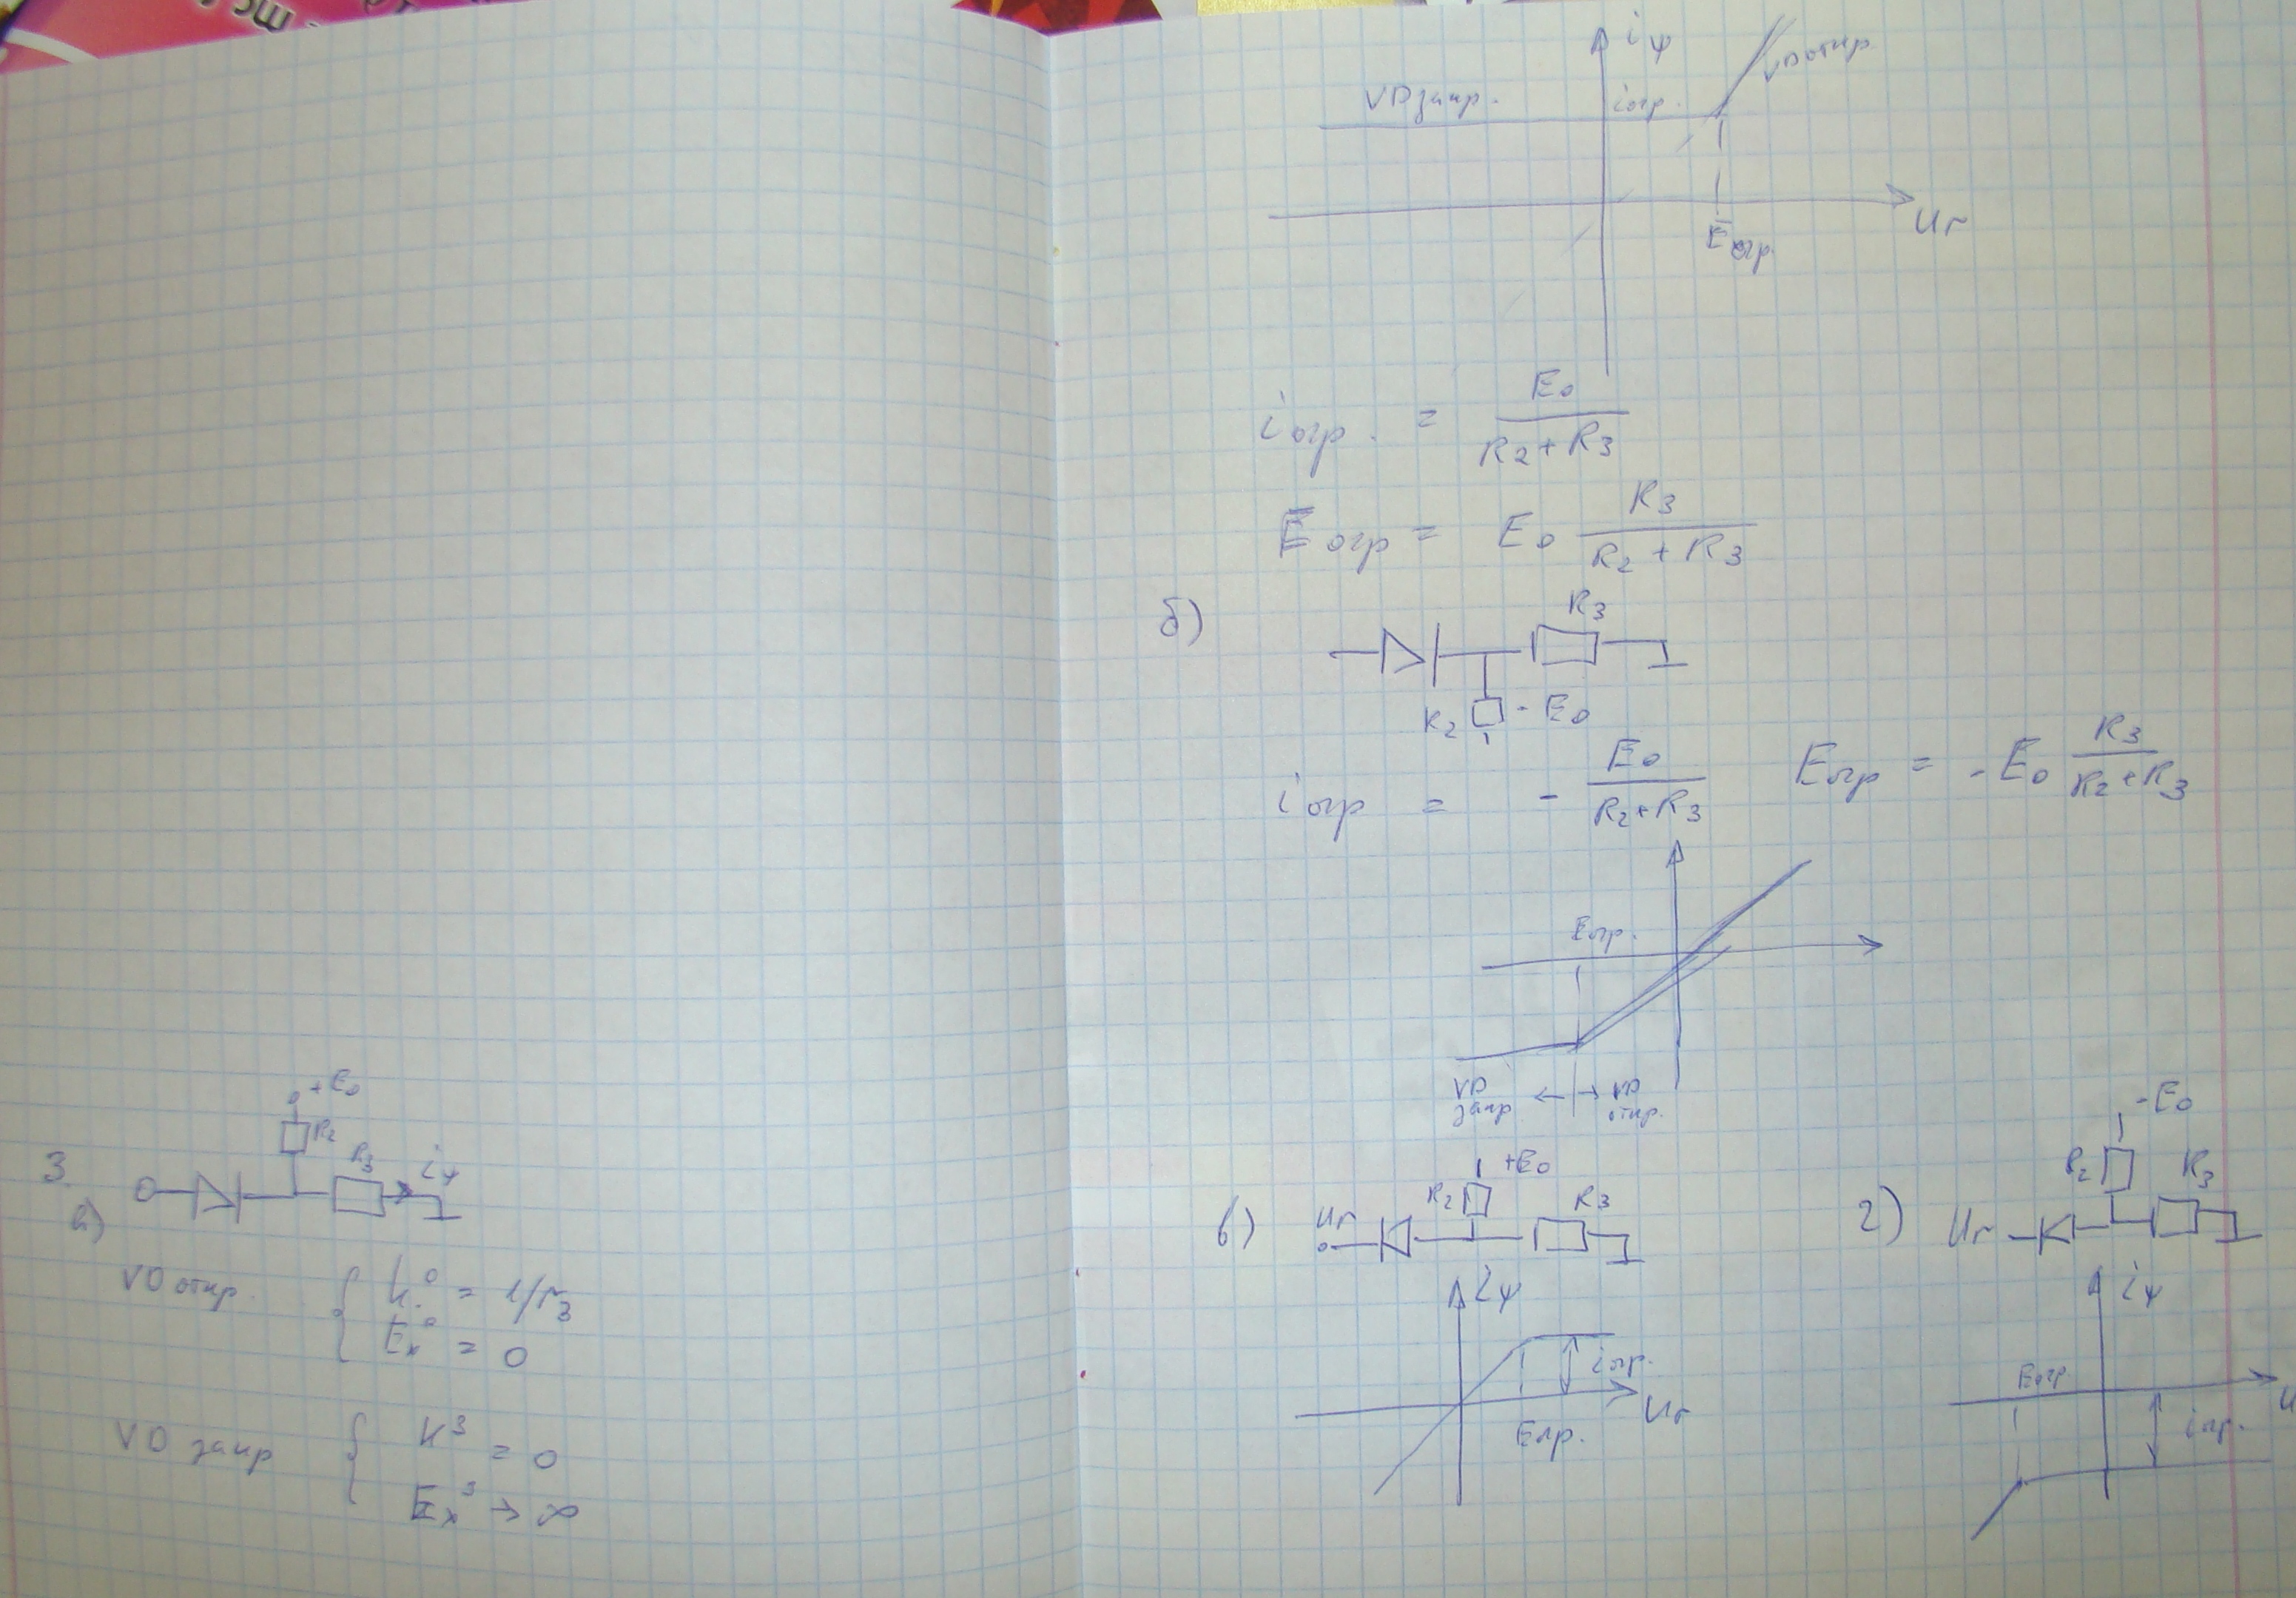 3.
а)
+E₀
R₂
R₃
iψ
VD откр.
K⁰ = 1/r₃
Eₓ⁰ = 0
VD запр
K³ = 0
Eₓ³ → ∞
iψ
VD запр.
iогр.
VD откр.
Uг
Eогр.
iогр. = E₀ / (R₂ + R₃)
Eогр = E₀ R₃ / (R₂ + R₃)
б)
R₃
R₂
- E₀
iогр = - E₀ / (R₂ + R₃)
Eогр = - E₀ R₃ / (R₂ + R₃)
Eогр.
VD запр ← → VD откр.
в)
Uг
R₂
+E₀
R₃
iψ
iогр.
Eогр.
Uг
г)
Uг
R₂
-E₀
R₃
iψ
Eогр
iогр.